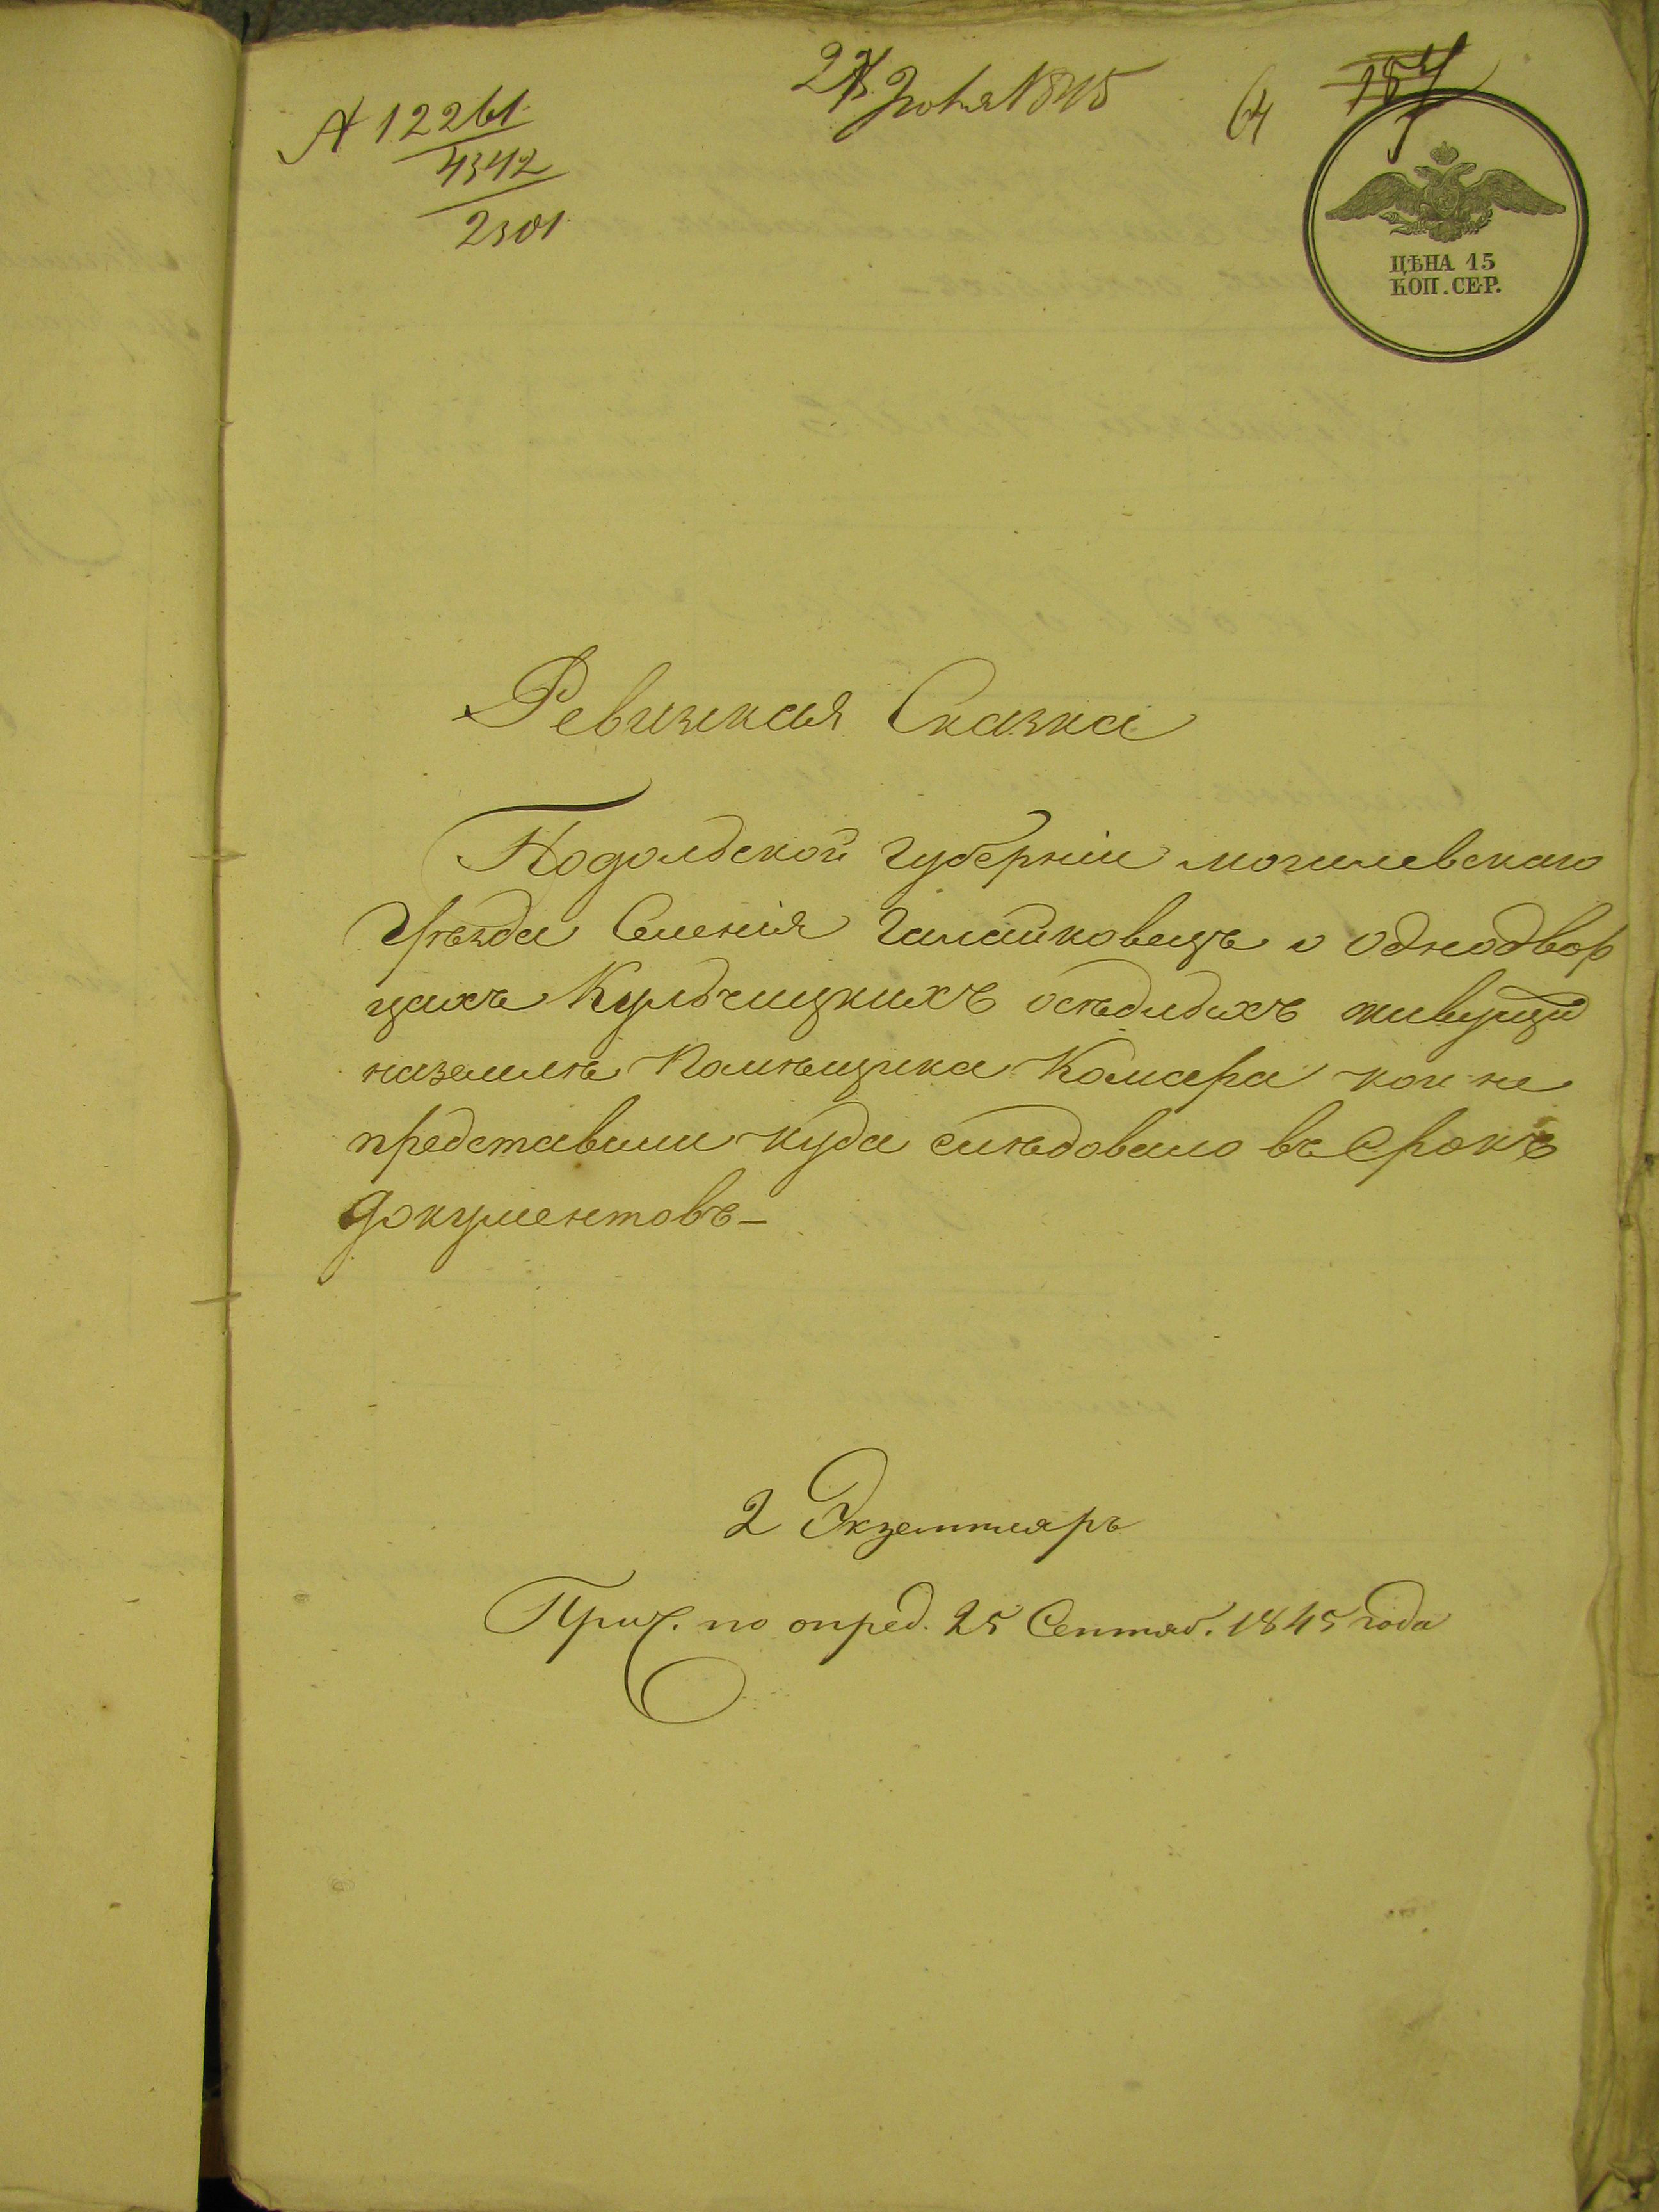 № 12261
4342
2301
1845
64
157
ЦѢНА 15
КОП. СЕР.
Ревизкая Сказка
Подольской губерніи могилевскаго
Уѣзда Селенія Галайковецъ о однодвор
цахъ Кульчицкихъ осѣдлыхъ живущи
наземлѣ Помѣщика Комара кои не
представили куда слѣдовало въ Срокъ
документовъ—
2 Экземпляръ
Прич. по опред. 25 Сентяб. 1845 года